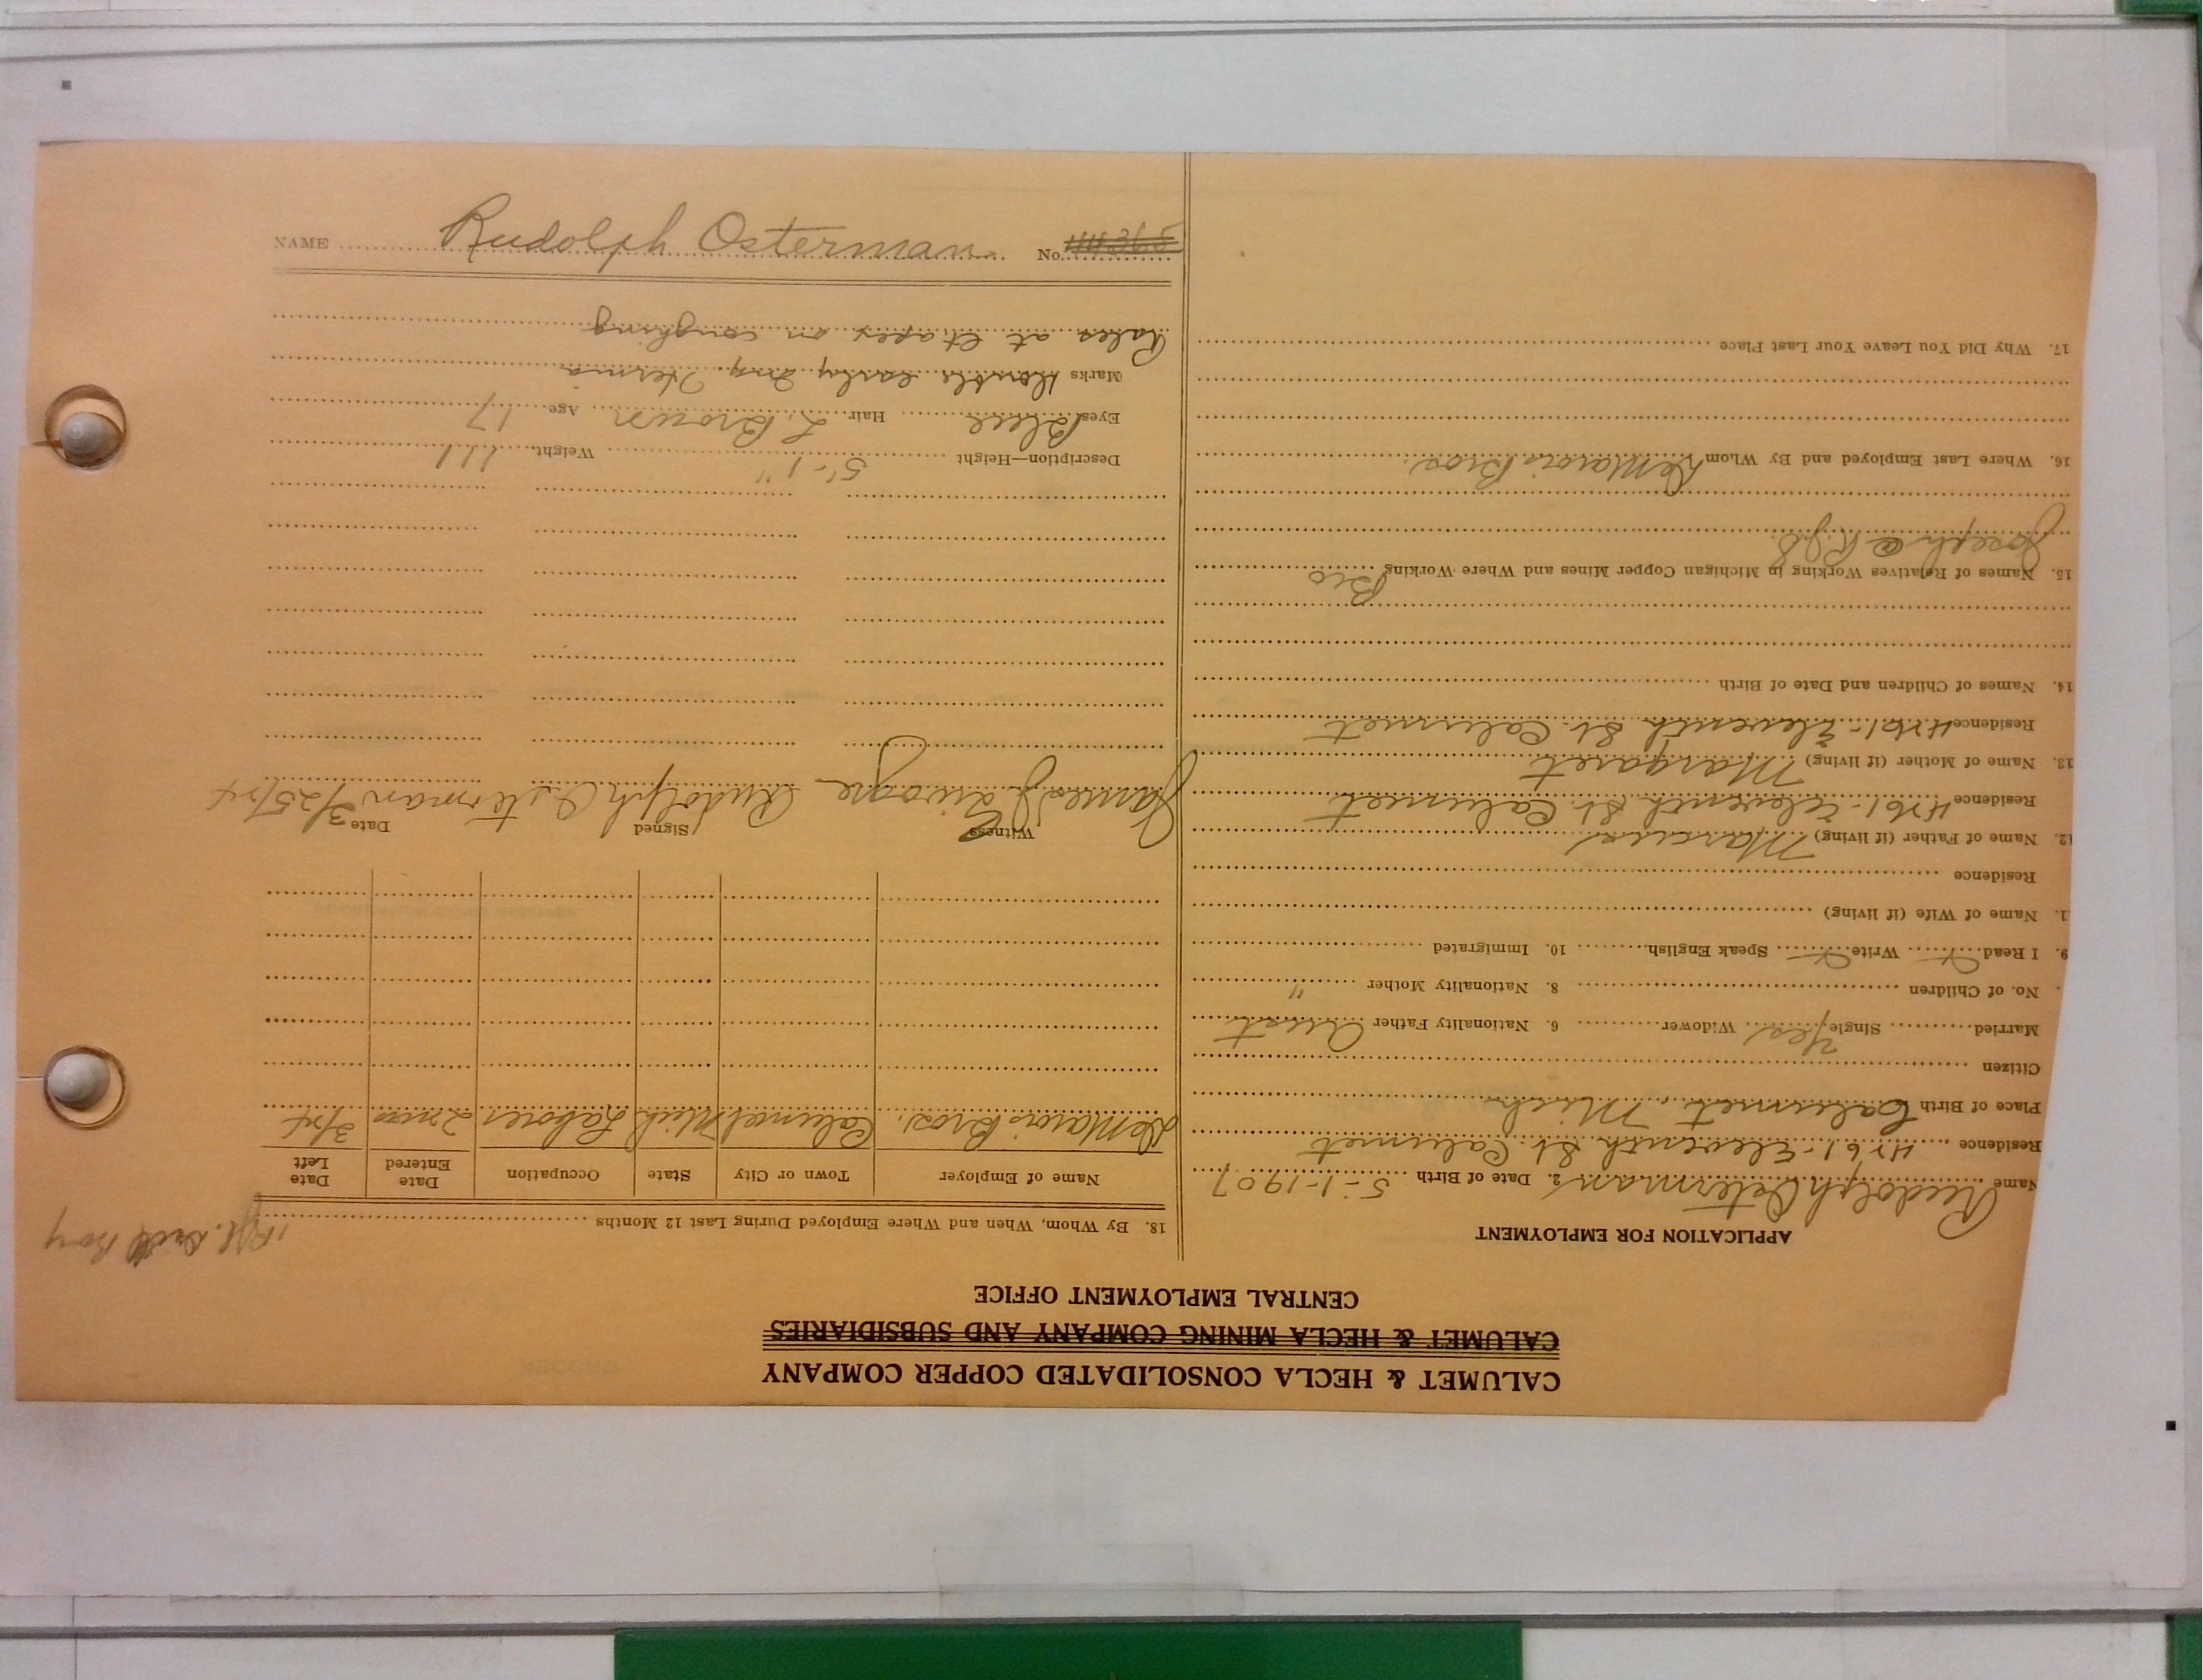 CALUMET & HECLA CONSOLIDATED COPPER COMPANY
CALUMET & HECLA MINING COMPANY AND SUBSIDIARIES
CENTRAL EMPLOYMENT OFFICE
APPLICATION FOR EMPLOYMENT
Name Rudolph Osterman 2. Date of Birth 5-1-1907
Residence 4261-Eleventh St. Calumet
Place of Birth Calumet, Mich
Citizen
Married Single Yes Widower 6. Nationality Father Aust
No. of Children 8. Nationality Mother "
9. I Read Write Speak English 10. Immigrated
1. Name of Wife (if living)
Residence
12. Name of Father (if living) Marcus
Residence 4261-Eleventh St. Calumet
13. Name of Mother (if living) Margaret
Residence 4261-Eleventh St. Calumet
14. Names of Children and Date of Birth
15. Names of Relatives Working in Michigan Copper Mines and Where Working Bro
Joseph @
16. Where Last Employed and By Whom DeMarois Bros.
17. Why Did You Leave Your Last Place
Drill Boy
18. By Whom, When and Where Employed During Last 12 Months
Name of Employer Town or City State Occupation Date Entered Date Left
DeMarois Bros. Calumet Mich Laborer 2 mos 3/24
Witness Signed Date
James Rudolph Osterman 3/25/24
Description—Height 5'-1" Weight 111
Eyes Blue Hair L. Brown Age 17
Marks Double early Ing. Hernia
Rales at apex on coughing
NAME Rudolph Osterman No. 44365